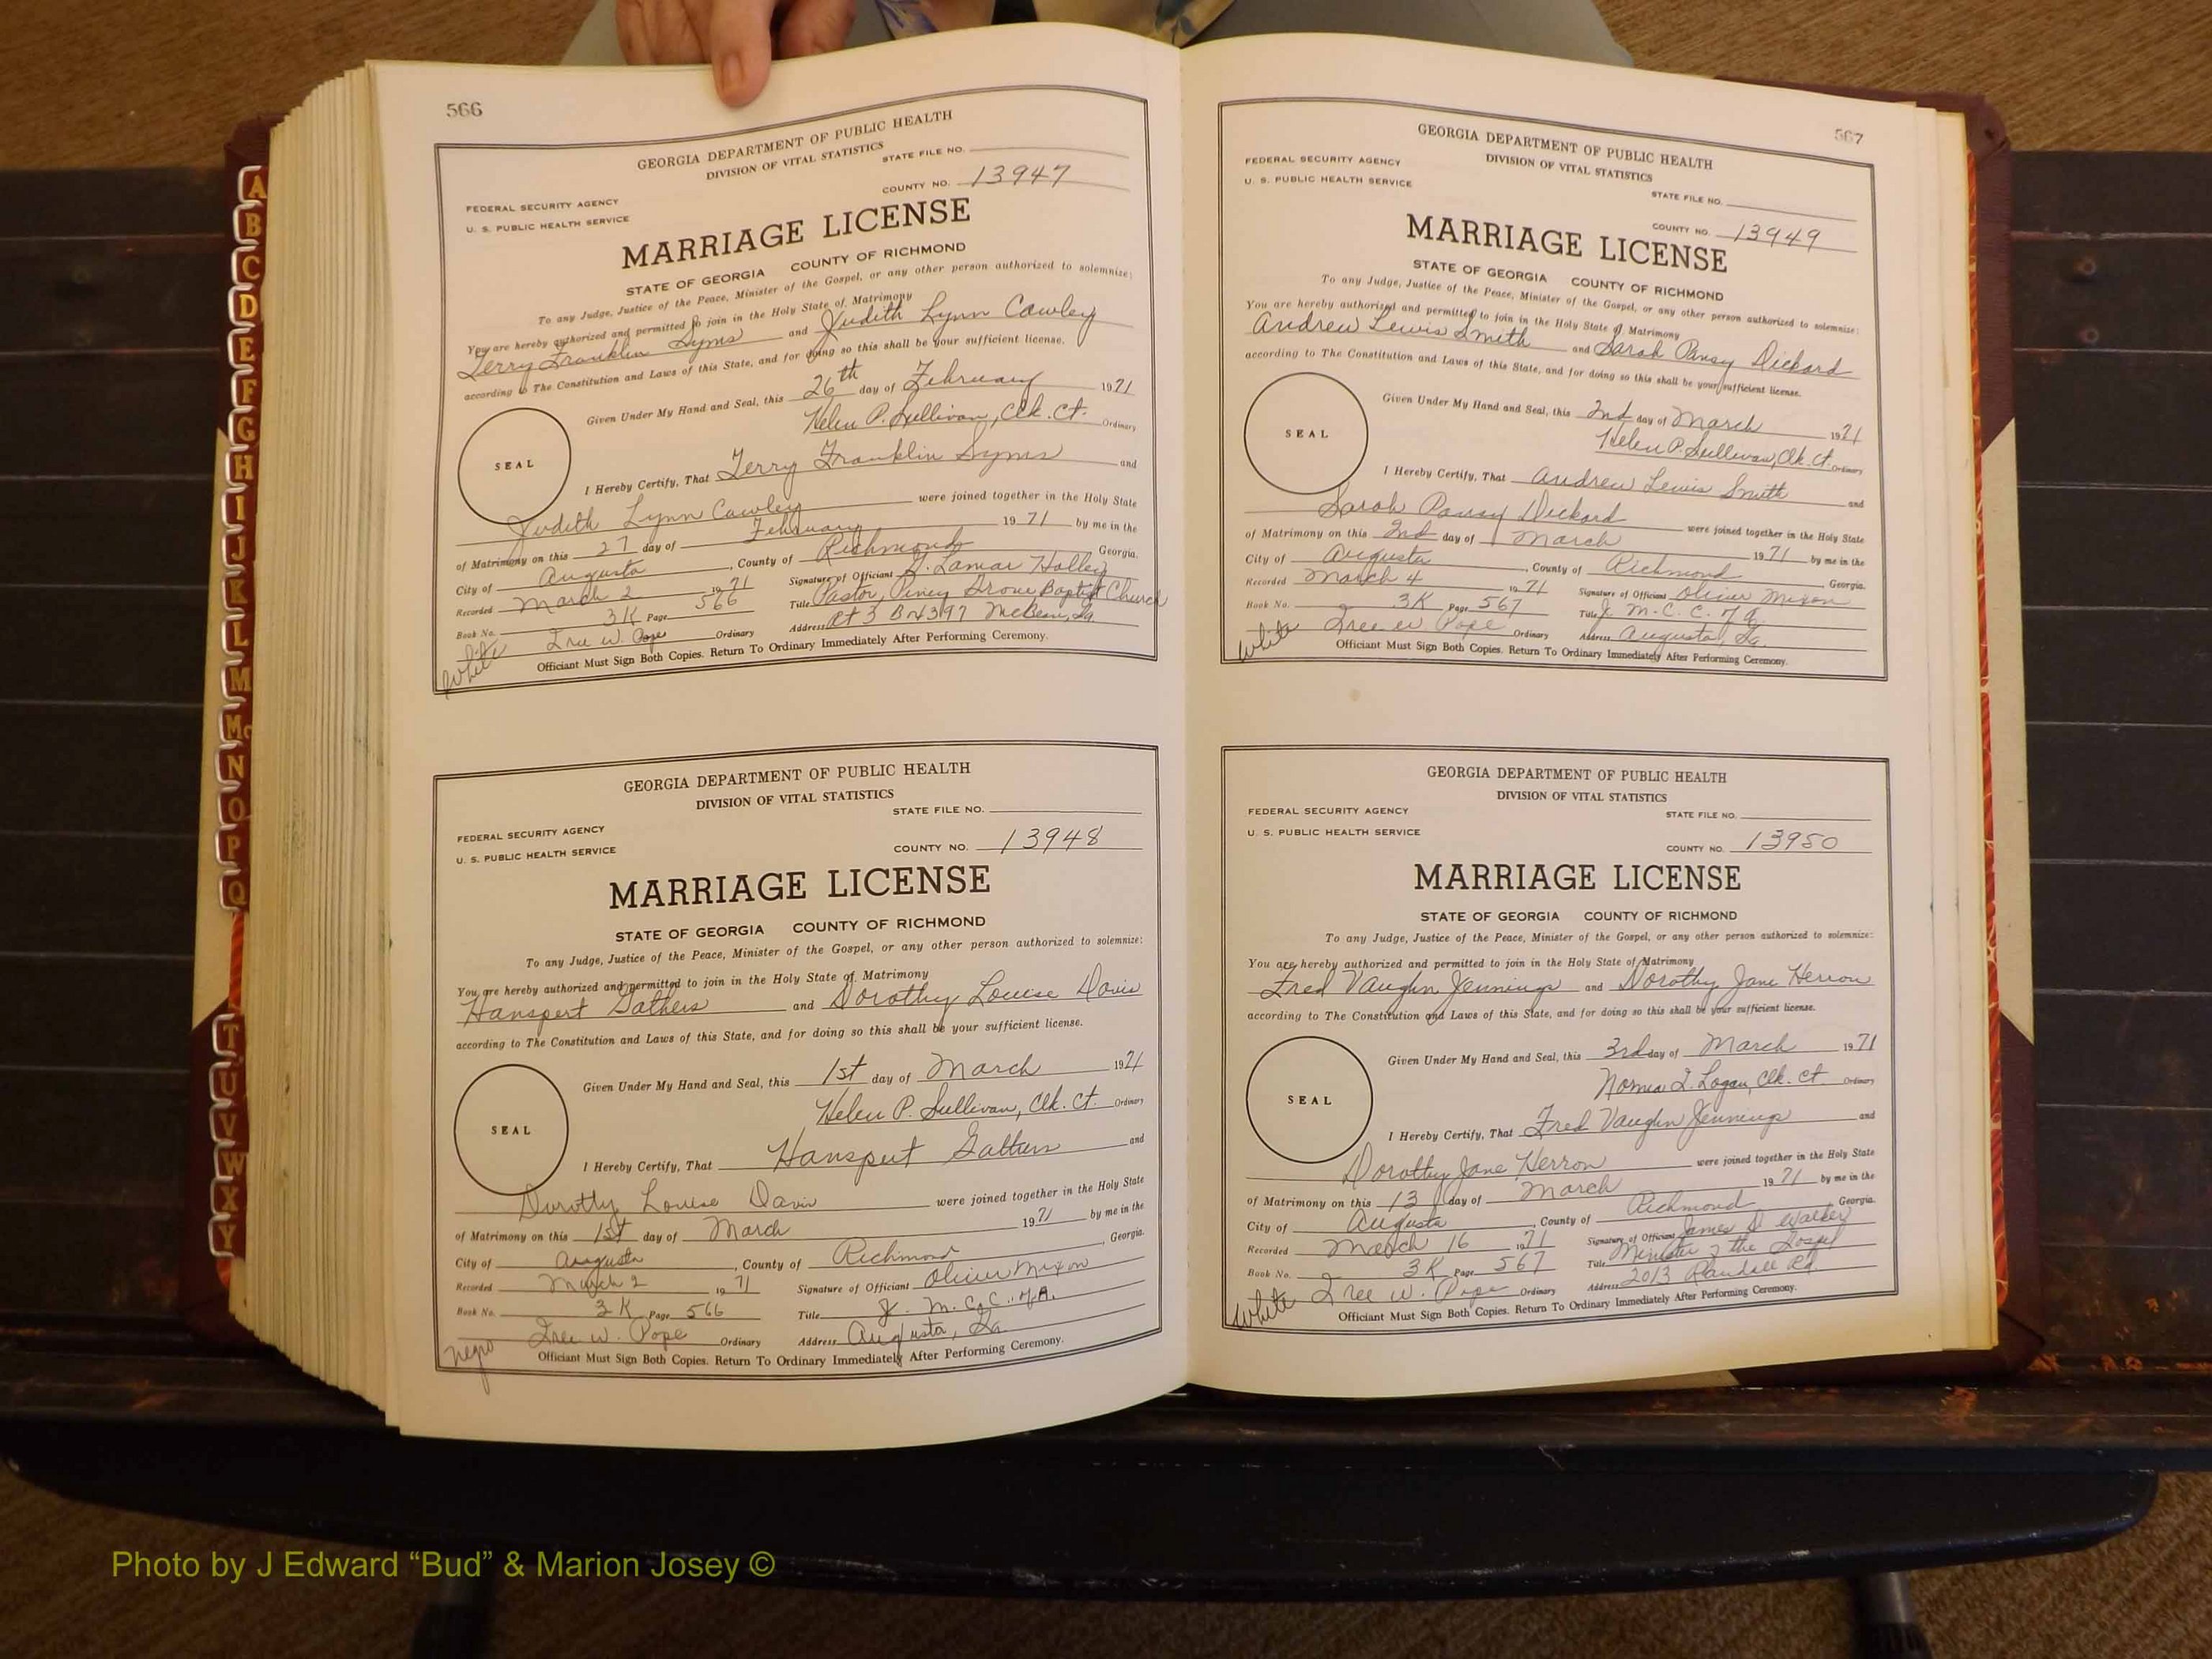 566
GEORGIA DEPARTMENT OF PUBLIC HEALTH
DIVISION OF VITAL STATISTICS
STATE FILE NO.
COUNTY NO. 13947
FEDERAL SECURITY AGENCY
U. S. PUBLIC HEALTH SERVICE
MARRIAGE LICENSE
STATE OF GEORGIA COUNTY OF RICHMOND
To any Judge, Justice of the Peace, Minister of the Gospel, or any other person authorized to solemnize:
You are hereby authorized and permitted to join in the Holy State of Matrimony
Terry Franklin Syms and Judith Lynn Cawley
according to The Constitution and Laws of this State, and for doing so this shall be your sufficient license.
Given Under My Hand and Seal, this 26th day of February 1971
Helen P. Sullivan, Clk. Ct. Ordinary
SEAL
I Hereby Certify, That Terry Franklin Syms and
Judith Lynn Cawley were joined together in the Holy State
of Matrimony on this 27 day of February 1971 by me in the
City of Augusta, County of Richmond Georgia.
Recorded March 2 1971 Signature of Officiant J. Lamar Holley
Book No. 3K Page 566 Title Pastor, Piney Grove Baptist Church
Iree W. Pope Ordinary Address Rt 3 Bx 397 McBean, Ga.
White
Officiant Must Sign Both Copies. Return To Ordinary Immediately After Performing Ceremony.
GEORGIA DEPARTMENT OF PUBLIC HEALTH
DIVISION OF VITAL STATISTICS
STATE FILE NO.
FEDERAL SECURITY AGENCY
U. S. PUBLIC HEALTH SERVICE
COUNTY NO. 13948
MARRIAGE LICENSE
STATE OF GEORGIA COUNTY OF RICHMOND
To any Judge, Justice of the Peace, Minister of the Gospel, or any other person authorized to solemnize:
You are hereby authorized and permitted to join in the Holy State of Matrimony
Hanspert Gathers and Dorothy Louise Davis
according to The Constitution and Laws of this State, and for doing so this shall be your sufficient license.
Given Under My Hand and Seal, this 1st day of March 1971
Helen P. Sullivan, Clk. Ct. Ordinary
SEAL
I Hereby Certify, That Hanspert Gathers and
Dorothy Louise Davis were joined together in the Holy State
of Matrimony on this 1st day of March 1971 by me in the
City of Augusta, County of Richmond, Georgia.
Recorded March 2 1971 Signature of Officiant Oliver Mixon
Book No. 3K Page 566 Title J. M. C. C. of A.
Iree W. Pope Ordinary Address Augusta, Ga.
negro
Officiant Must Sign Both Copies. Return To Ordinary Immediately After Performing Ceremony.
567
GEORGIA DEPARTMENT OF PUBLIC HEALTH
DIVISION OF VITAL STATISTICS
FEDERAL SECURITY AGENCY
U. S. PUBLIC HEALTH SERVICE
STATE FILE NO.
COUNTY NO. 13949
MARRIAGE LICENSE
STATE OF GEORGIA COUNTY OF RICHMOND
To any Judge, Justice of the Peace, Minister of the Gospel, or any other person authorized to solemnize:
You are hereby authorized and permitted to join in the Holy State of Matrimony
Andrew Lewis Smith and Sarah Pansy Dickard
according to The Constitution and Laws of this State, and for doing so this shall be your sufficient license.
Given Under My Hand and Seal, this 2nd day of March 1971
Helen P. Sullivan, Clk. Ct. Ordinary
SEAL
I Hereby Certify, That Andrew Lewis Smith and
Sarah Pansy Dickard were joined together in the Holy State
of Matrimony on this 2nd day of March 1971 by me in the
City of Augusta, County of Richmond Georgia.
Recorded March 4 1971 Signature of Officiant Oliver Mixon
Book No. 3K Page 567 Title J. M. C. C. of A.
Iree W. Pope Ordinary Address Augusta, Ga.
White
Officiant Must Sign Both Copies. Return To Ordinary Immediately After Performing Ceremony.
GEORGIA DEPARTMENT OF PUBLIC HEALTH
DIVISION OF VITAL STATISTICS
FEDERAL SECURITY AGENCY
STATE FILE NO.
U. S. PUBLIC HEALTH SERVICE
COUNTY NO. 13950
MARRIAGE LICENSE
STATE OF GEORGIA COUNTY OF RICHMOND
To any Judge, Justice of the Peace, Minister of the Gospel, or any other person authorized to solemnize:
You are hereby authorized and permitted to join in the Holy State of Matrimony
Fred Vaughn Jennings and Dorothy Jane Herron
according to The Constitution and Laws of this State, and for doing so this shall be your sufficient license.
Given Under My Hand and Seal, this 3rd day of March 1971
Norma I. Logan, Clk. Ct. Ordinary
SEAL
I Hereby Certify, That Fred Vaughn Jennings and
Dorothy Jane Herron were joined together in the Holy State
of Matrimony on this 13 day of March 1971 by me in the
City of Augusta, County of Richmond, Georgia.
Recorded March 16 1971 Signature of Officiant James D Walker
Book No. 3K Page 567 Title Minister of the Gospel
Iree W. Pope Ordinary Address 2013 Randall Rd.
White
Officiant Must Sign Both Copies. Return To Ordinary Immediately After Performing Ceremony.
A
B
C
D
E
F
G
H
I
J
K
L
M
Mc
N
O
P
Q
T
U
V
W
X
Y
Photo by J Edward “Bud” & Marion Josey ©